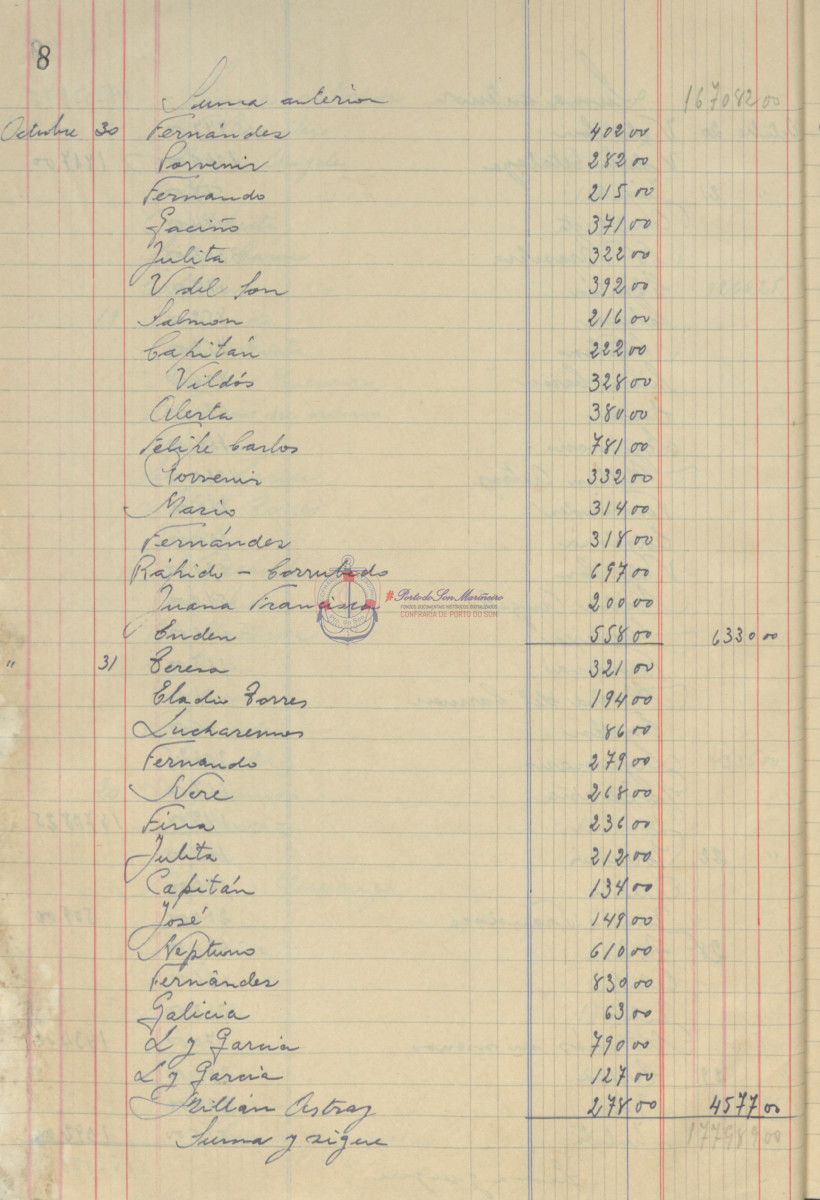 8
Suma anterior 167082 00
Octubre 30 Fernández 402 00
Porvenir 282 00
Fernando 215 00
Gaciño 371 00
Julita 322 00
V del Son 392 00
Salmon 216 00
Capitán 222 00
Vildós 328 00
Alerta 380 00
Felipe Carlos 781 00
Porvenir 332 00
Mario 314 00
Fernández 318 00
Rápido - Corrubedo 697 00
Juana Francisca 200 00
Enden 558 00 6330 00
" 31 Teresa 321 00
Eladio Torres 194 00
Lucharemos 86 00
Fernando 279 00
Nere 268 00
Fina 236 00
Julita 212 00
Capitán 134 00
José 149 00
Neptuno 610 00
Fernández 830 00
Galicia 63 00
L y Garcia 790 00
L y Garcia 127 00
Millán Astray 278 00 4577 00
Suma y sigue 177989 00
#Porto do Son Mariñeiro
FONDOS DOCUMENTAIS HISTÓRICOS DIXITALIZADOS
CONFRARÍA DE PORTO DO SON